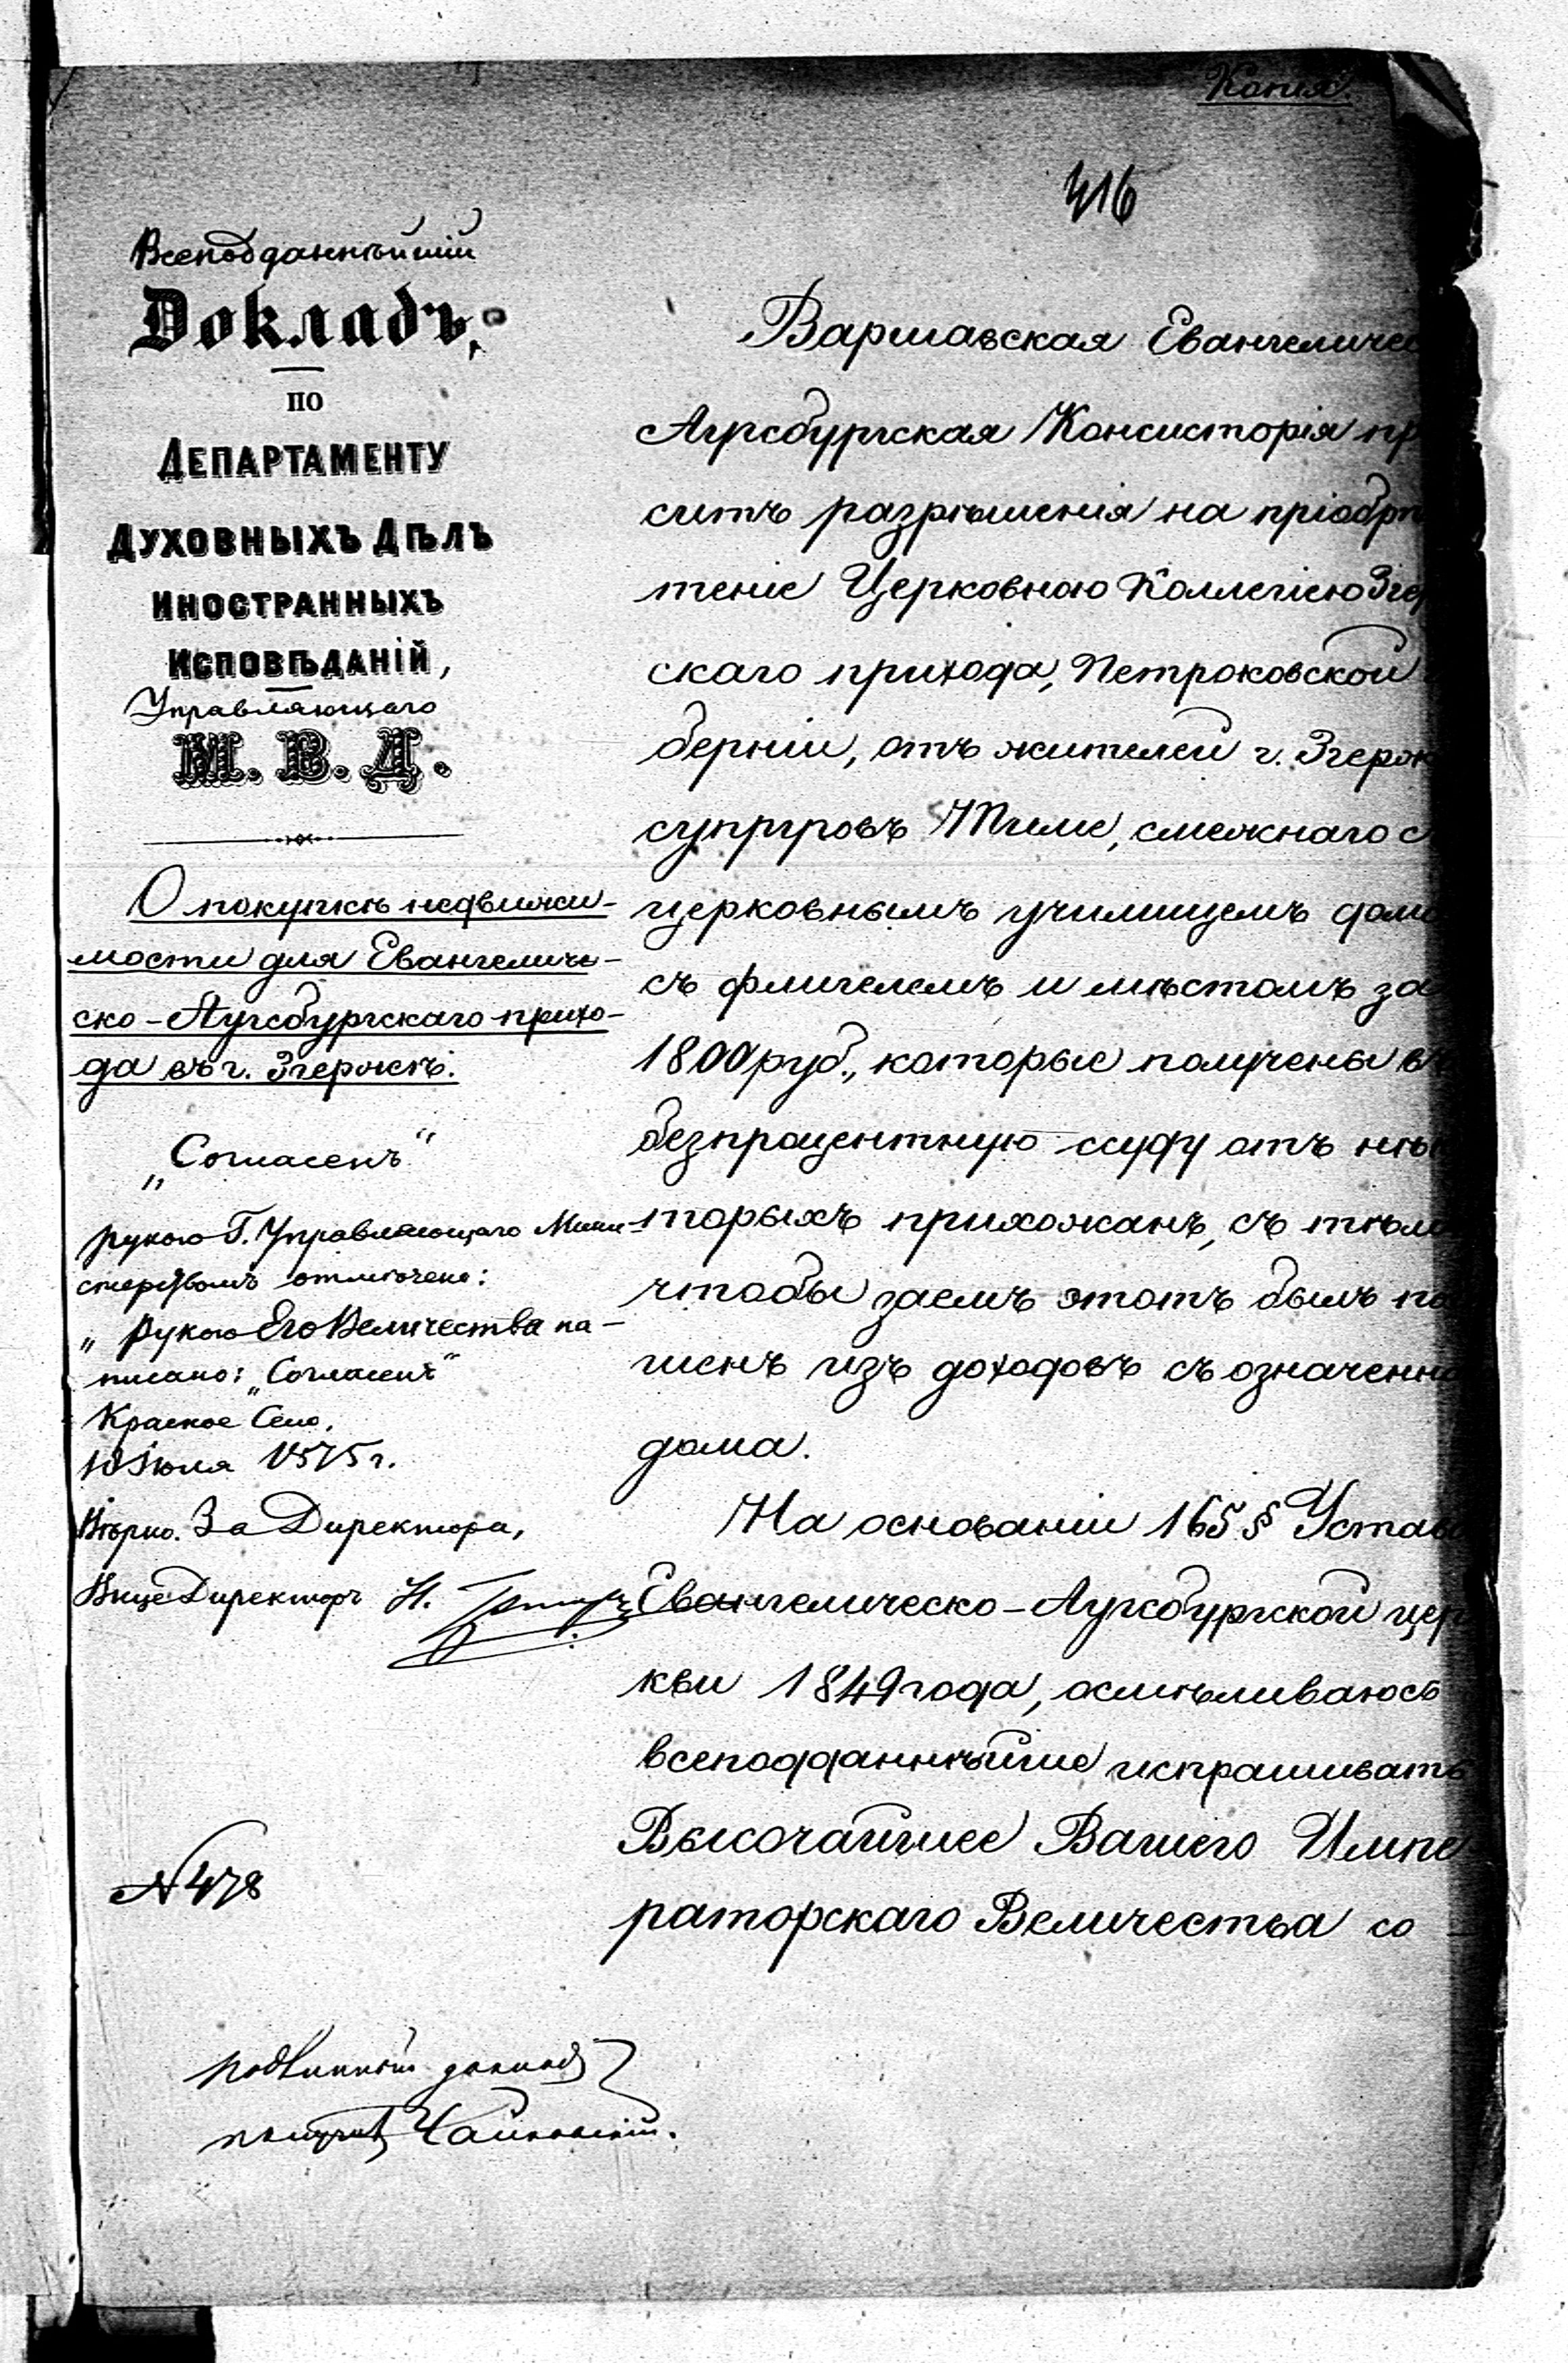 Копія.
416
Всеподданнѣйшій
Докладъ,
ПО
ДЕПАРТАМЕНТУ
ДУХОВНЫХЪ ДѢЛЪ
ИНОСТРАННЫХЪ
ИСПОВѢДАНІЙ,
Управляющаго
М. В. Д.
О покупкѣ недвижи-
мости для Евангеличе-
ско-Аугсбургскаго прихо-
да въ г. Згержѣ.
„Согласенъ“
рукою Г. Управляющаго Мини-
стерствомъ отмѣчено:
„Рукою Его Величества на-
писано: „Согласенъ“
Красное Село,
10 Іюля 1875 г.
Вѣрно. За Директора,
Вице Директоръ Н.
№ 478
подлинный докладъ
получилъ Чайковскій.
Варшавская Евангеличес
Аугсбургская Консисторія пр
ситъ разрѣшенія на пріобрѣ
теніе Церковною Коллегіею Згер
скаго прихода, Петроковской
берніи, отъ жителей г. Згержа
супруговъ Тиме, смежнаго съ
церковнымъ училищемъ дома
съ флигелемъ и мѣстомъ за
1800 руб., которые получены въ
безпроцентную ссуду отъ нѣк
торыхъ прихожанъ, съ тѣмъ
чтобы заемъ этотъ былъ по
шенъ изъ доходовъ съ означенно
дома.
На основаніи 165 § Устава
Евангелическо-Аугсбургской цер
кви 1849 года, осмѣливаюсь
всеподданнѣйше испрашивать
Высочайшее Вашего Импе
раторскаго Величества со-